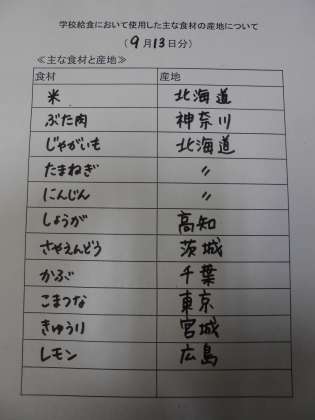 学校給食において使用した主な食材の産地について
(9月13日分)
≪主な食材と産地≫
食材 産地
米 北海道
ぶた肉 神奈川
じゃがいも 北海道
たまねぎ 〃
にんじん 〃
しょうが 高知
さやえんどう 茨城
かぶ 千葉
こまつな 東京
きゅうり 宮城
レモン 広島